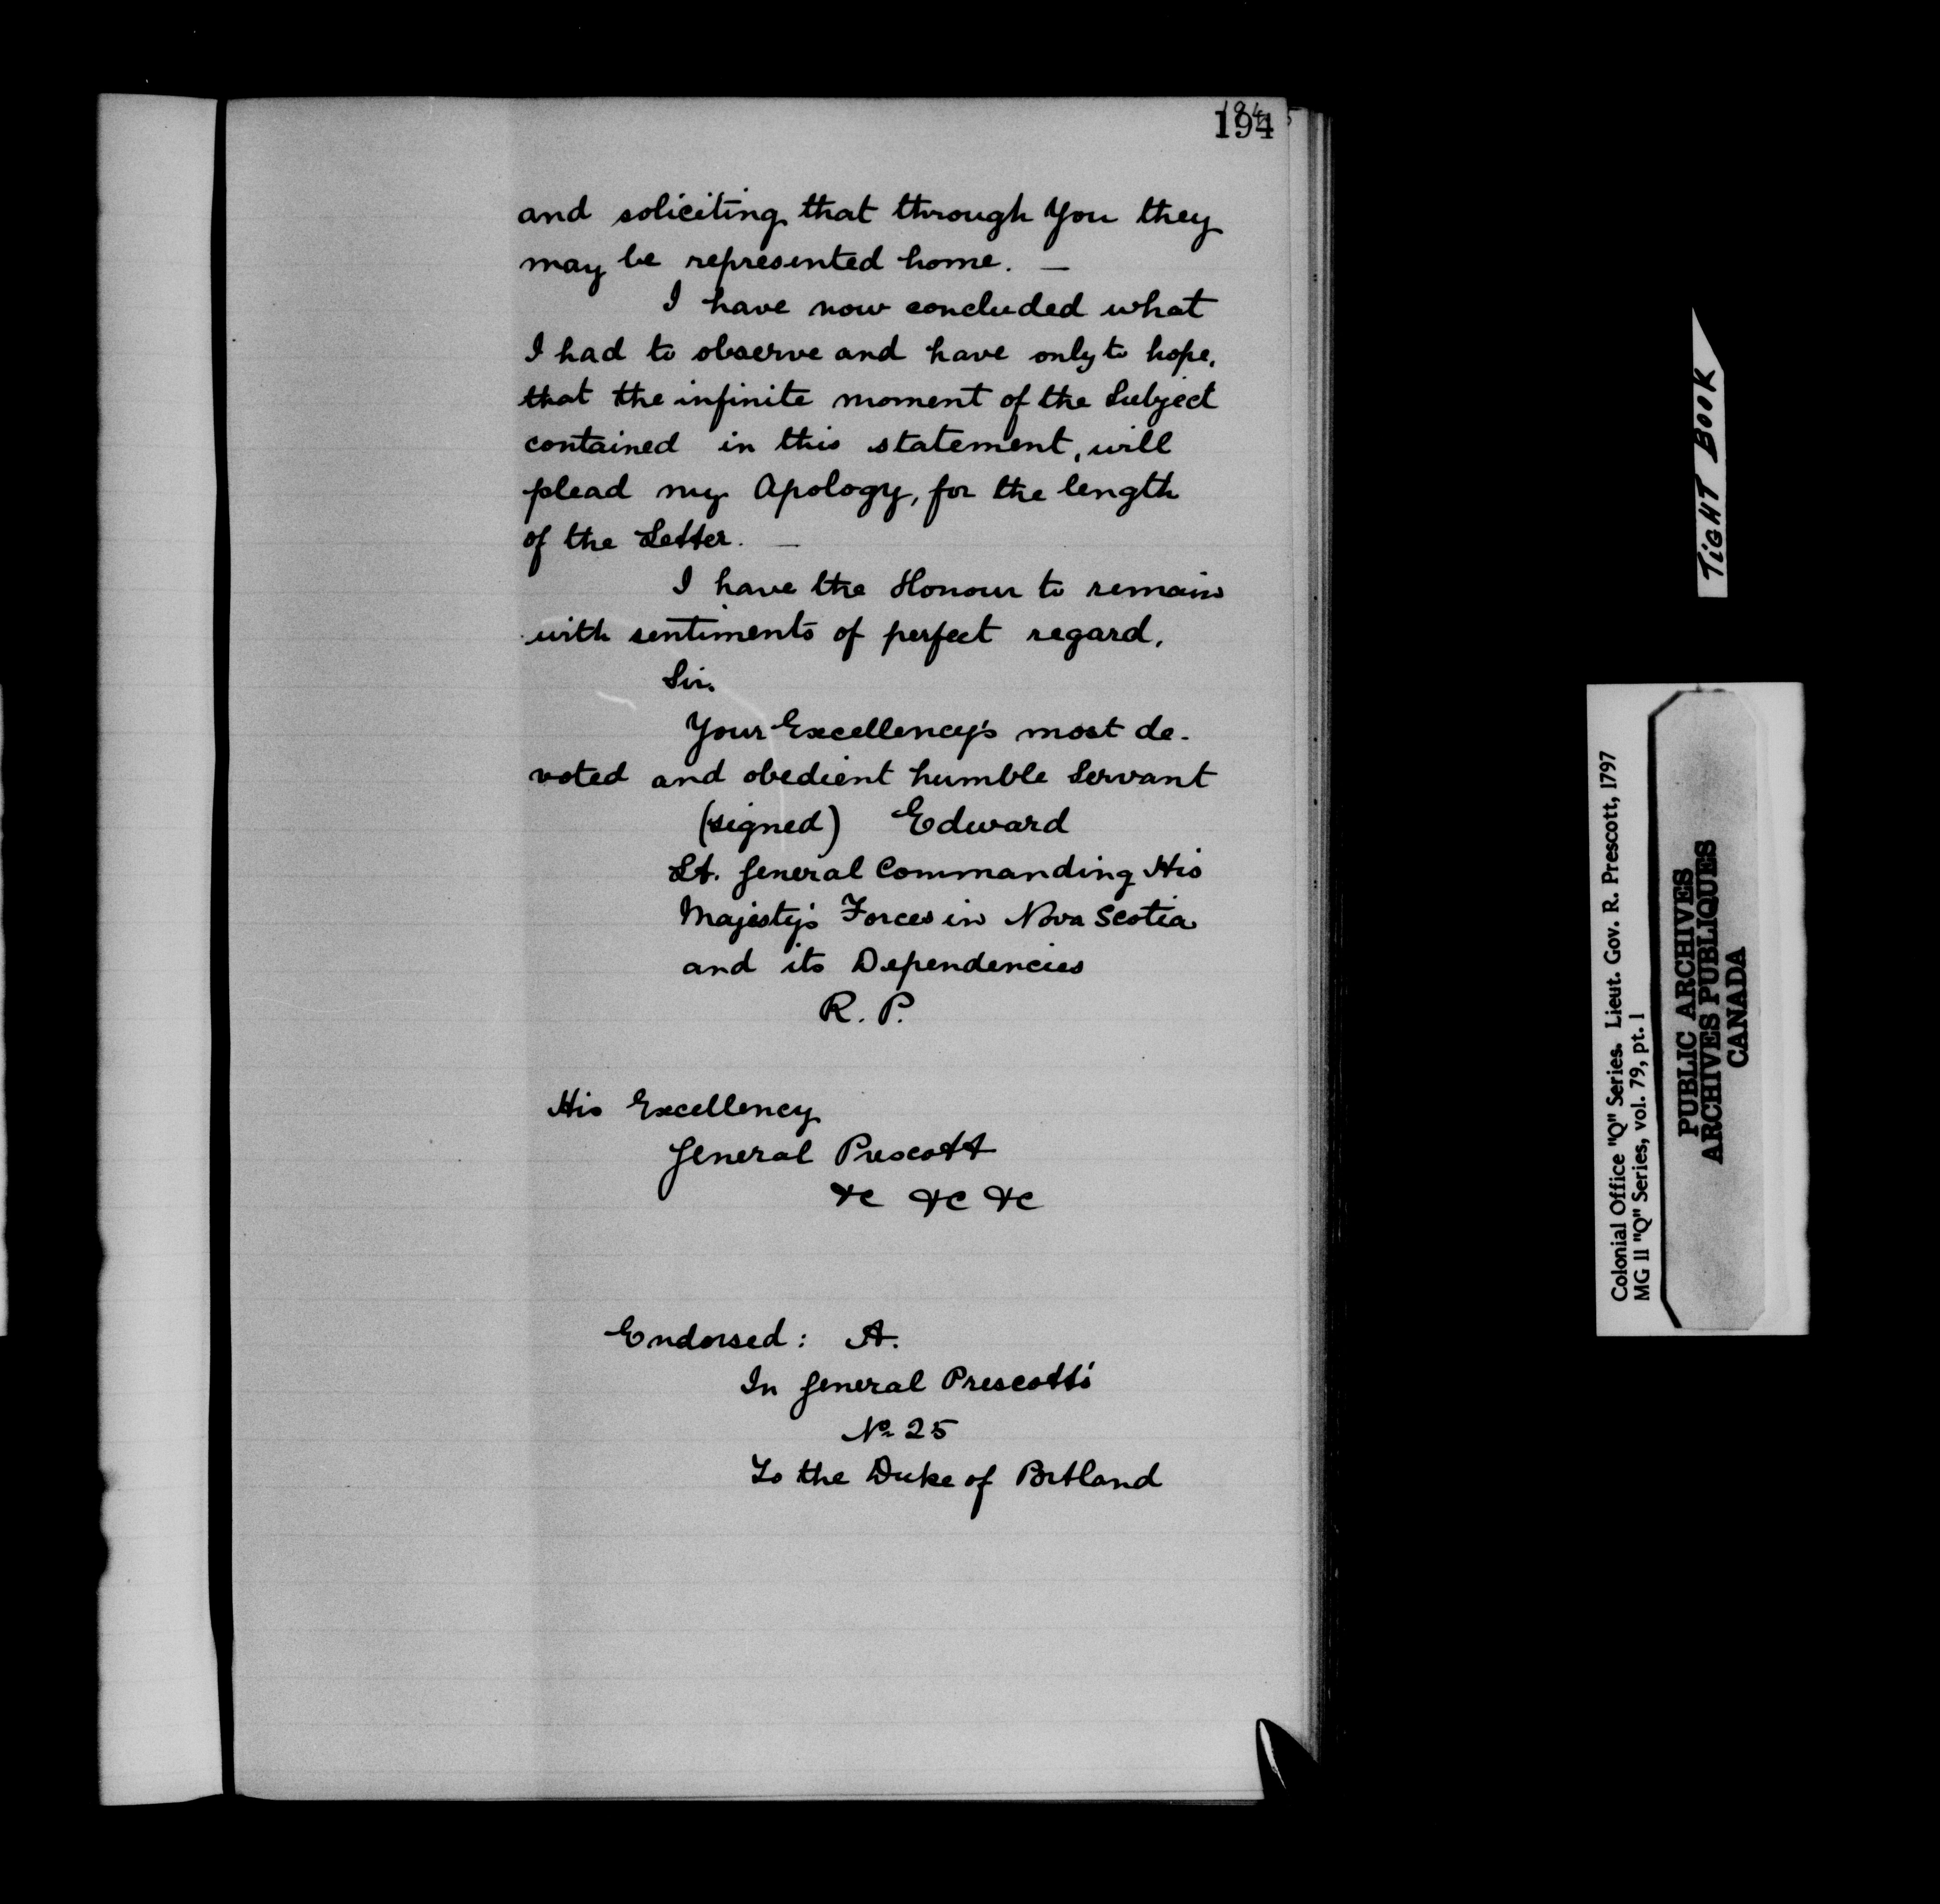 194
and soliciting that through You they
may be represented home. —
I have now concluded what
I had to observe and have only to hope,
that the infinite moment of the Subject
contained in this statement, will
plead my Apology, for the length
of the Letter. —
I have the Honour to remain
with sentiments of perfect regard,
Sir,
Your Excellency's most de-
voted and obedient humble Servant
(signed) Edward
Lt. General Commanding His
Majesty's Forces in Nova Scotia
and its Dependencies
R. P.
His Excellency
General Prescott
&c &c &c
Endorsed: A.
In General Prescott's
No. 25
To the Duke of Portland
TIGHT BOOK
Colonial Office "Q" Series. Lieut. Gov. R. Prescott, 1797
MG 11 "Q" Series, vol. 79, pt. 1
PUBLIC ARCHIVES
ARCHIVES PUBLIQUES
CANADA